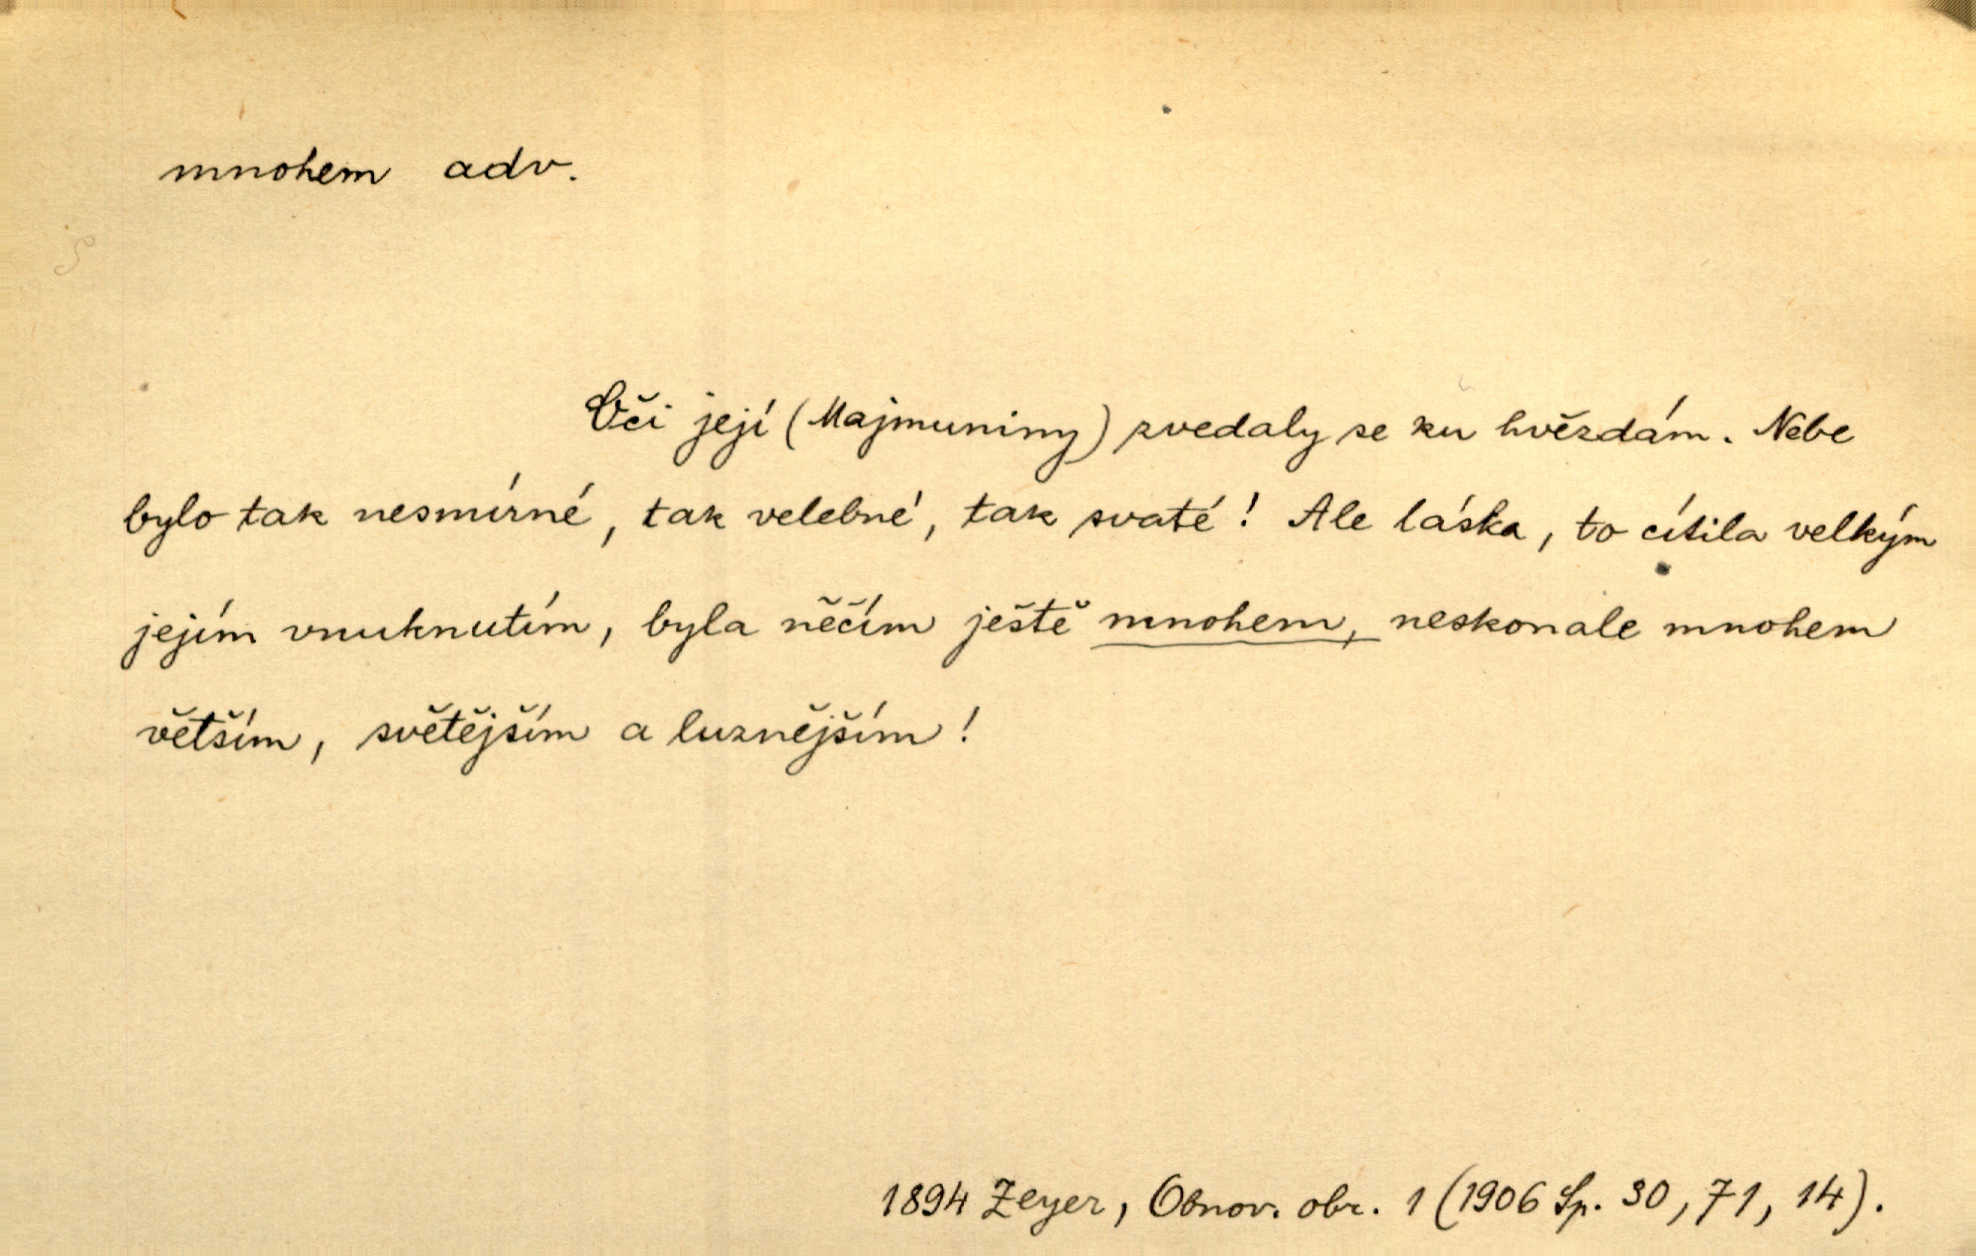 mnohem adv.
Oči její (Majmuniny) zvedaly se ku hvězdám. Nebe
bylo tak nesmírné, tak velebné, tak svaté! Ale láska, to cítila velkým
jejím vnuknutím, byla něčím ještě mnohem, neskonale mnohem
větším, světějším a luznějším!
1894 Zeyer, Obnov. obr. 1 (1906 Sp. 30, 71, 14).